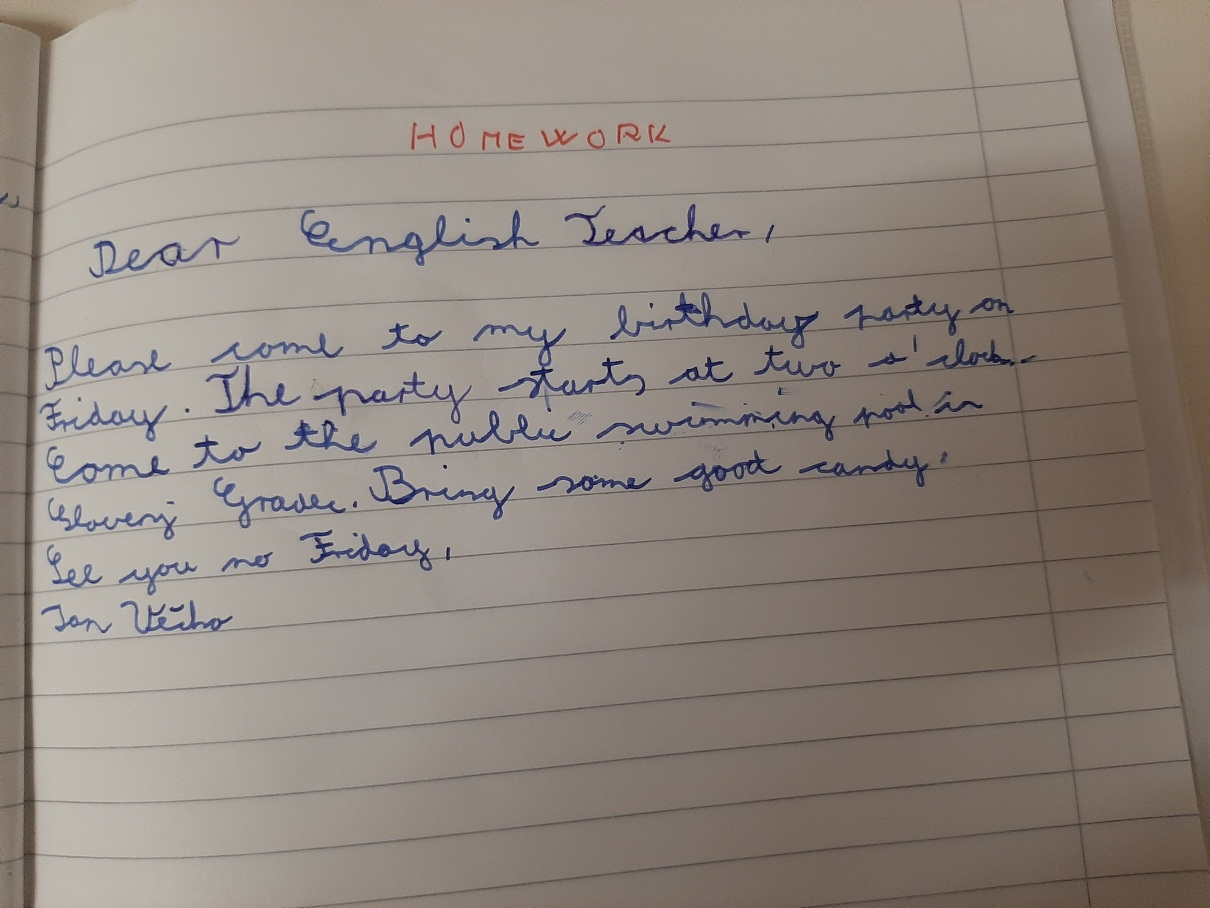 HOMEWORK
Dear English Teacher,
Please come to my birthday party on
Friday. The party starts at two o'clock.
Come to the public swimming pool in
Slovenj Gradec. Bring some good candy.
See you no Friday,
Jan